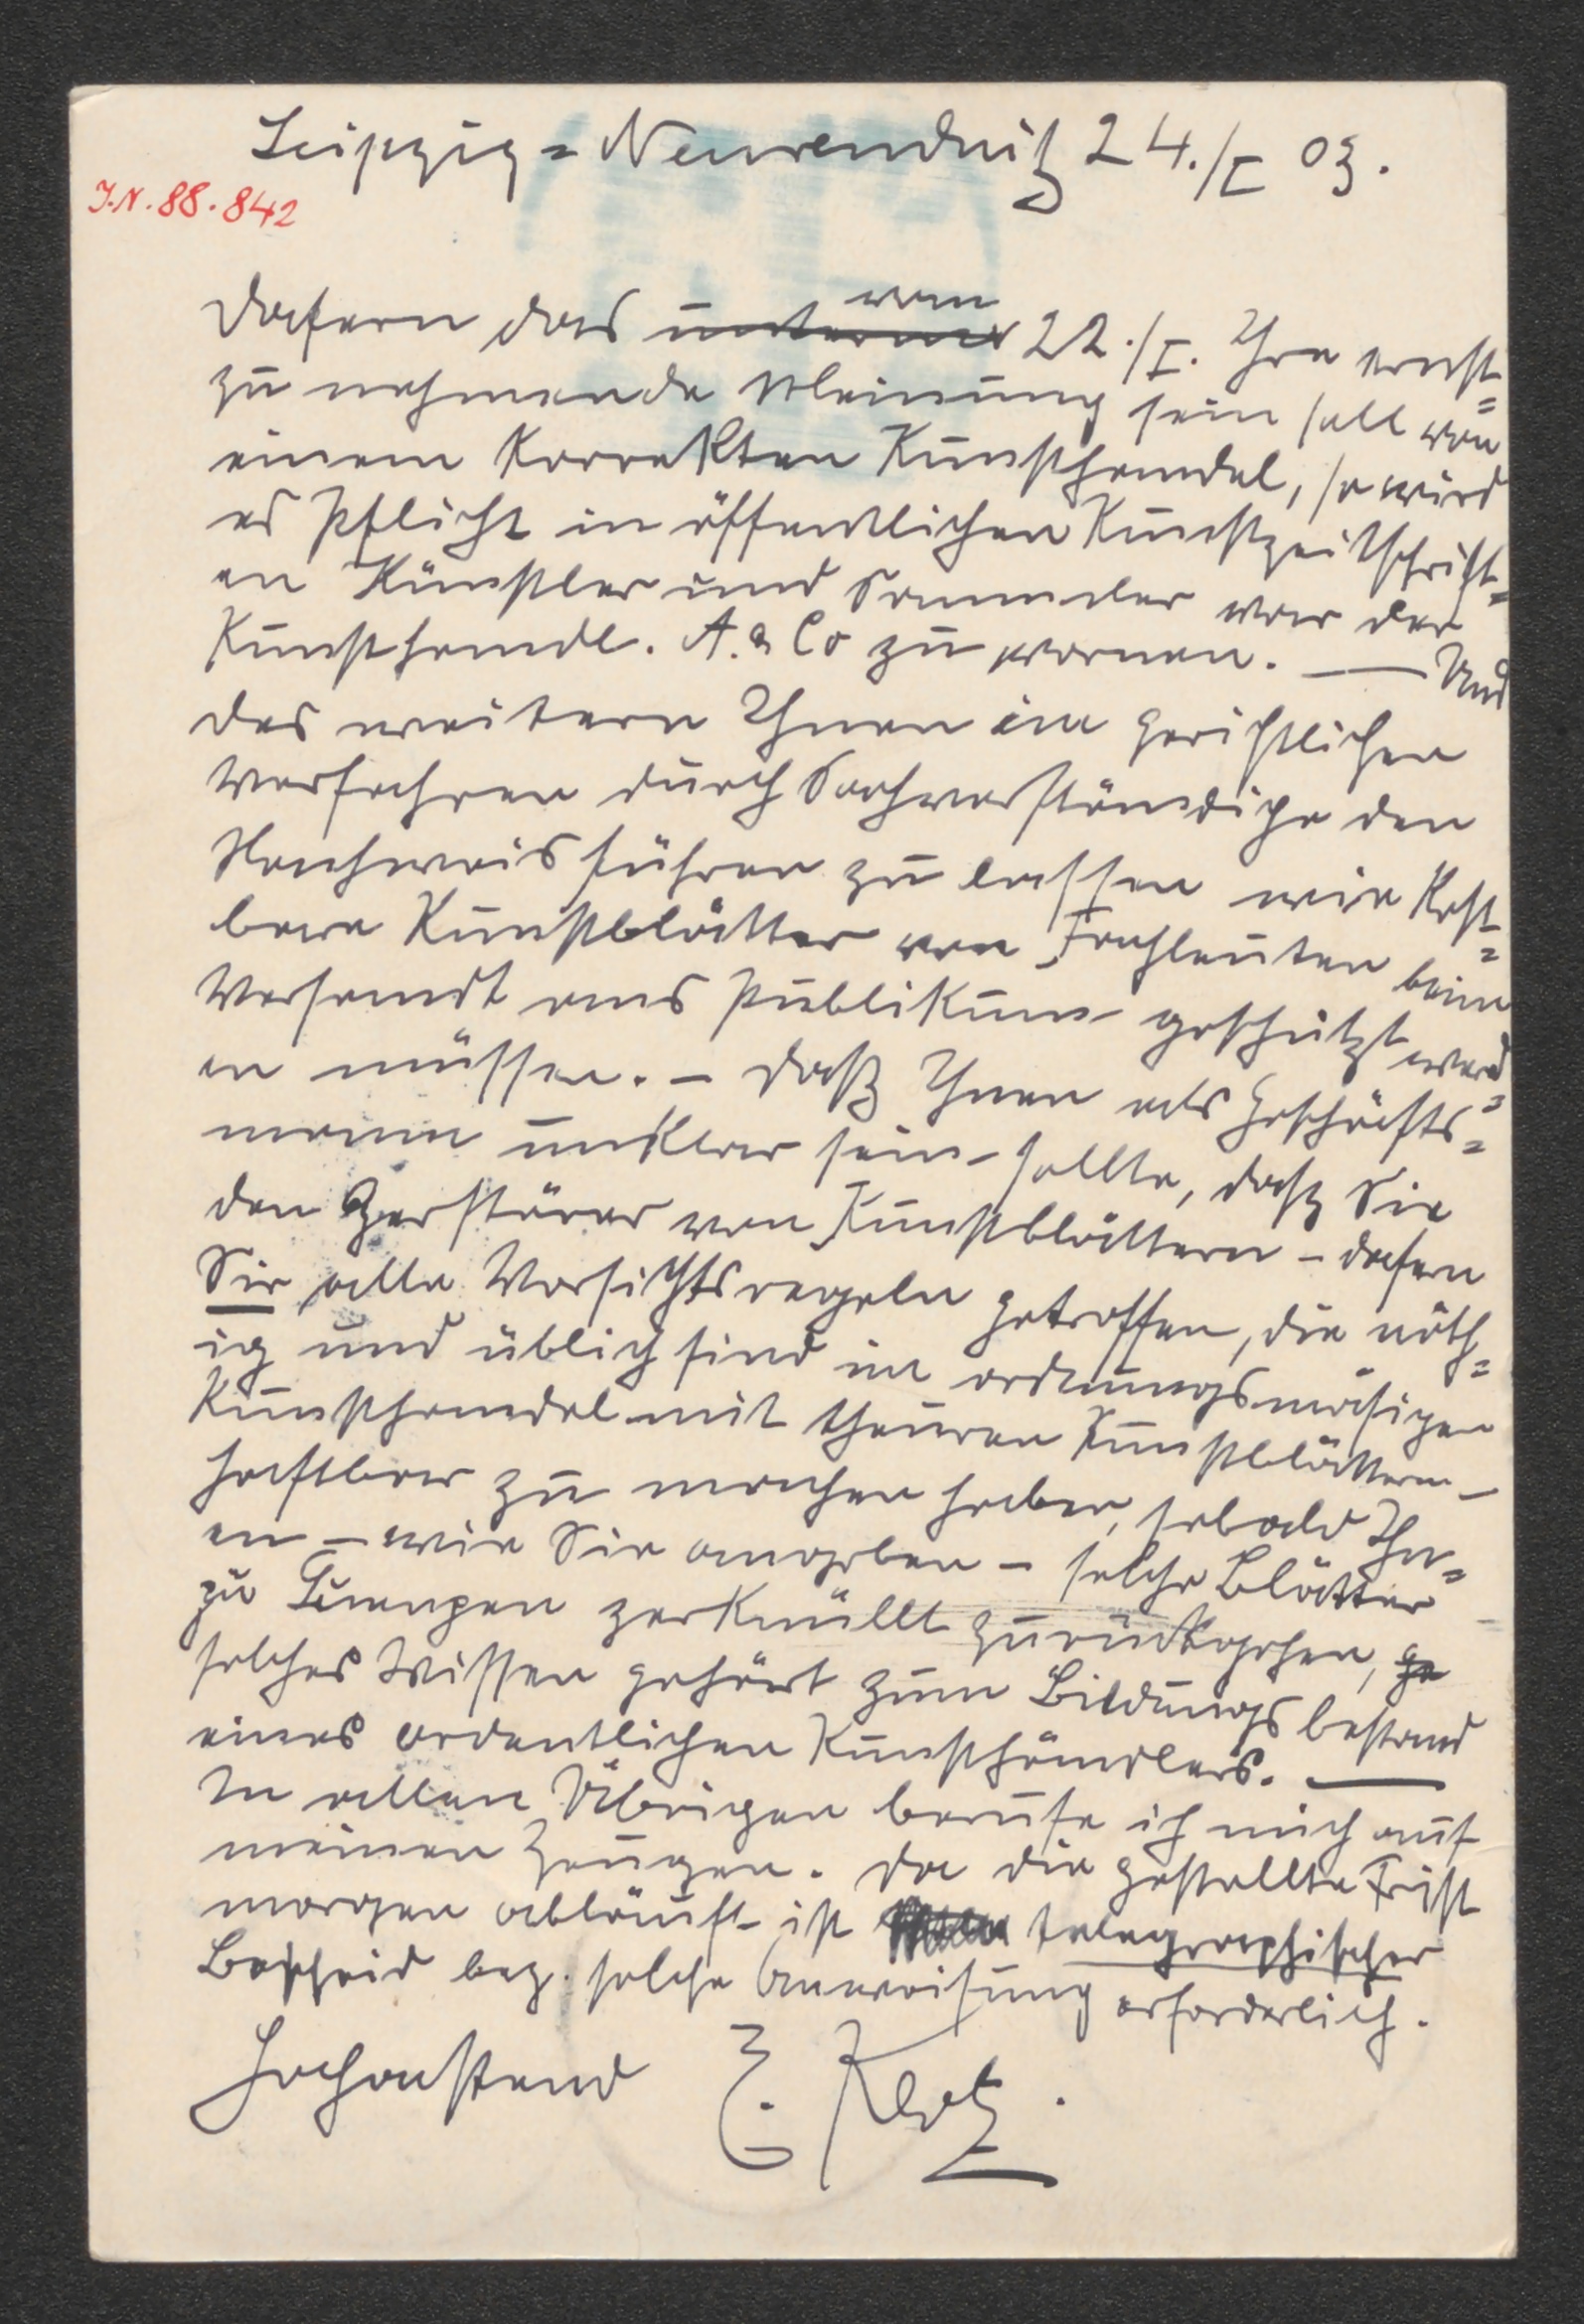 Leipzig=Neureudnitz 24./I 03.
J.N. 88.842
Dafern das vom 22./I. Ihre ernst=
zu nehmende Meinung sein soll von
einem korrekten Kunsthandel, so wird
es Pflicht in öffentlichen Kunstzeitschrift=
en Künstler und Sammler vor der
Kunsthandl. A. & Co zu warnen. — Und
des weitern Ihnen im gerichtlichen
Verfahren durch Sachverständige den
Nachweis führen zu lassen wie kost=
bare Kunstblätter von Fachleuten beim
Versandt ans Publikum geschützt werd=
en müssen. – Daß Ihnen als Geschäfts=
mann unklar sein sollte, daß Sie
den Zerstörer von Kunstblättern – dafern
Sie alle Vorsichtsregeln getroffen, die nöth=
ig und üblich sind im ordnungsmäsigen
Kunsthandel mit theuren Kunstblättern –
haftbar zu machen haben, sobald Ihn=
en – wie Sie angeben – solche Blätter
zu Lumpen zerknüllt zurückgehen, ge
solches Wissen gehört zum Bildungsbestand
eines ordentlichen Kunsthändlers. —
In allen Übrigen berufe ich mich auf
meinen Zeugen. Da die gestellte Frist
morgen abläuft ist telegraphischer
Bescheid bez. solche Anweisung erforderlich.
Hochachtend E. Klotz.